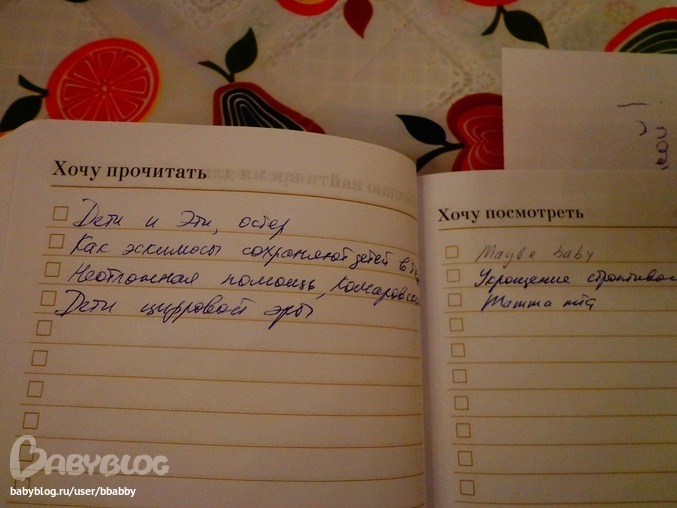 Хочу прочитать
Дети и Эти, остер
Как эскимосы сохраняют детей в
Неотложная помощь,
Дети цифровой эры
Хочу посмотреть
Maybe baby
Укрощение
BABYBLOG
babyblog.ru/user/bbabby